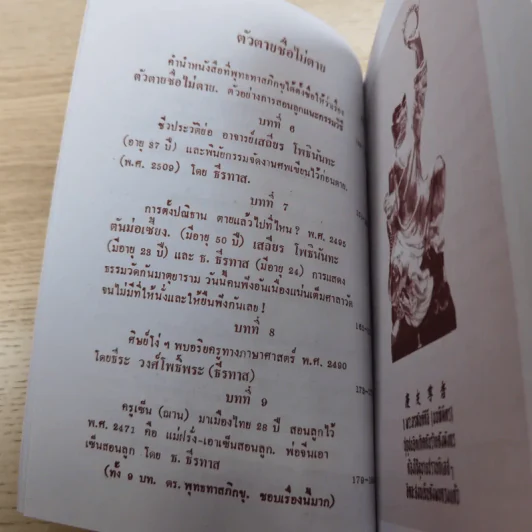 ตัวตายชื่อไม่ตาย
คำนำหนังสือที่พุทธทาสภิกขุได้ตั้งชื่อให้ว่าเรื่อง
ตัวตายชื่อไม่ตาย. ตัวอย่างการสอนลูกแนะกรรมวิธี
บทที่ 6
ชีวประวัติย่อ อาจารย์เสถียร โพธินันทะ
(อายุ 37 ปี) และพินัยกรรมจัดงานศพเขียนไว้ก่อนตาย.
(พ.ศ. 2509) โดย ธีรทาส.
บทที่ 7
การตั้งปณิธาน ตายแล้วไปที่ไหน? พ.ศ. 2495
ตันม่อเซี้ยง. (มีอายุ 50 ปี) เสถียร โพธินันทะ
(มีอายุ 23 ปี) และ ธ. ธีรทาส (มีอายุ 24) การแสดง
ธรรมวัดกันมาตุยาราม วันนี้คนฟังอั้นเนืองแน่นเต็มศาลาวัด
จนไม่มีที่ให้นั่งและให้ยืนฟังกันเลย!
บทที่ 8
ศิษย์โง่ ๆ พบอริยครูทางภาษาศาสตร์ พ.ศ. 2490
โดยธีระ วงศ์โพธิ์พระ (ธีรทาส)
บทที่ 9
ครูเซ็น (ฌาน) มาเมืองไทย 28 ปี สอนลูกไว้
พ.ศ. 2471 คือ แม่ปรั่ง-เอาเซ็นสอนลูก. พ่อจีนเอา
เซ็นสอนลูก โดย ธ. ธีรทาส
(ทั้ง 9 บท. ดร. พุทธทาสภิกขุ. ชอบเรื่องนี้มาก)